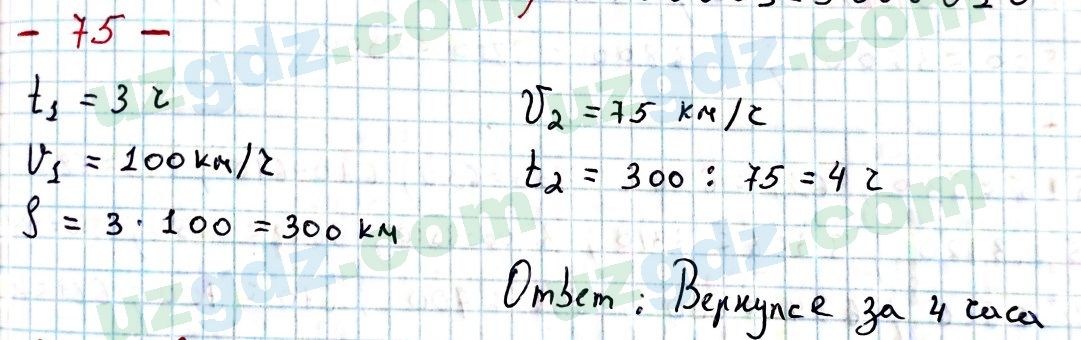 - 75 -
t₁ = 3 ч
v₁ = 100 км/ч
S = 3 · 100 = 300 км
v₂ = 75 км/ч
t₂ = 300 : 75 = 4 ч
Ответ: Вернулсе за 4 часа
uzgdz.com
uzgdz.com
uzgdz.com
uzgdz.com